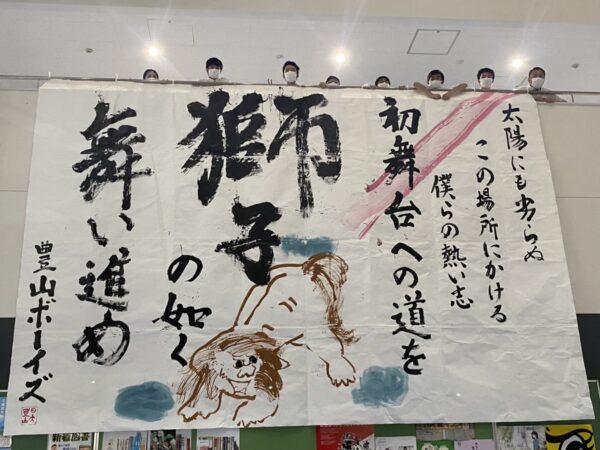 太陽にも劣らぬ
この場所にかける
僕らの熱い志
初舞台への道を
獅子
の如く
舞い進め
豊山ボーイズ
日大
豊山
新着図書